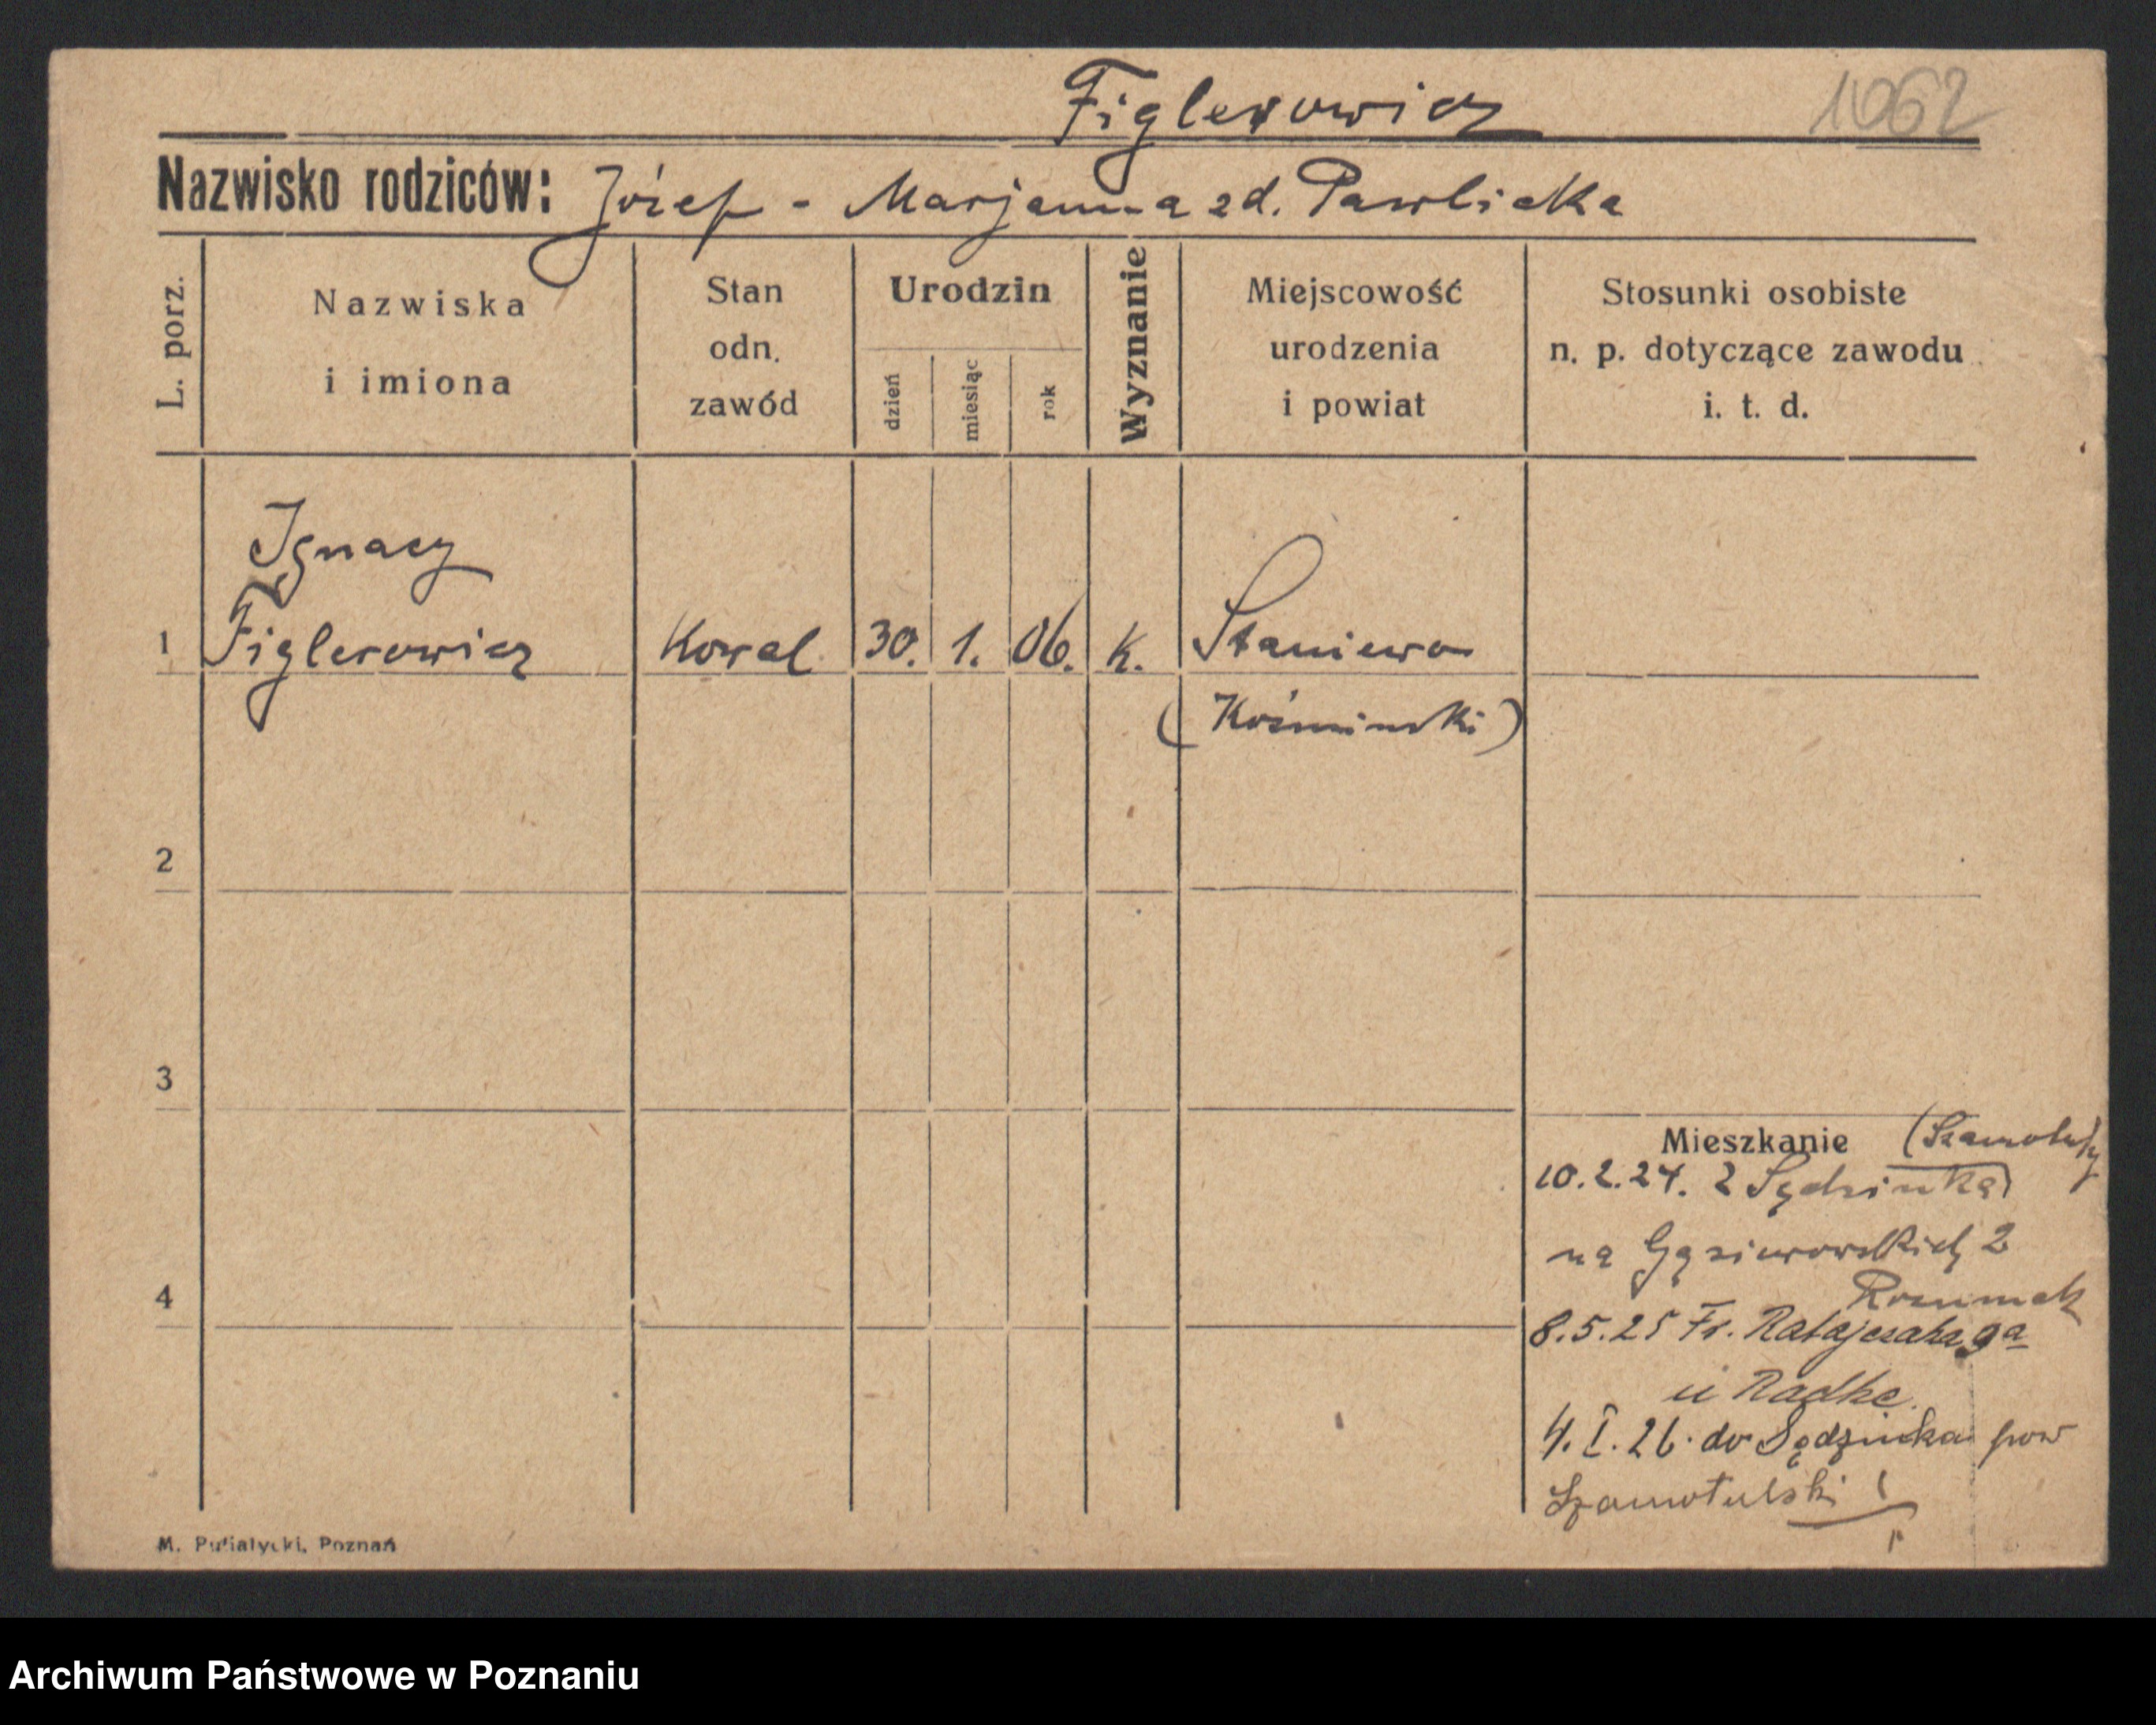 Figlerowicz 1062
Nazwisko rodziców: Józef - Marjanna zd. Pawlicka
L. porz.
Nazwiska
i imiona
Stan
odn.
zawód
Urodzin
dzień
miesiąc
rok
Wyznanie
Miejscowość
urodzenia
i powiat
Stosunki osobiste
n. p. dotyczące zawodu
i. t. d.
Ignacy
1 Figlerowicz Kowal 30. 1. 06. K. Staniewo
(Koźmiński)
2
3
Mieszkanie (Szamotuły
10.2.24. z Sędzinka)
na Gąsiorowskich 2
4
8.5.25 Fr. Ratajczaka 9a
u Radke.
4. I. 26. do Sędzinka pow
Szamotulski
M. Putiatycki, Poznań
Archiwum Państwowe w Poznaniu